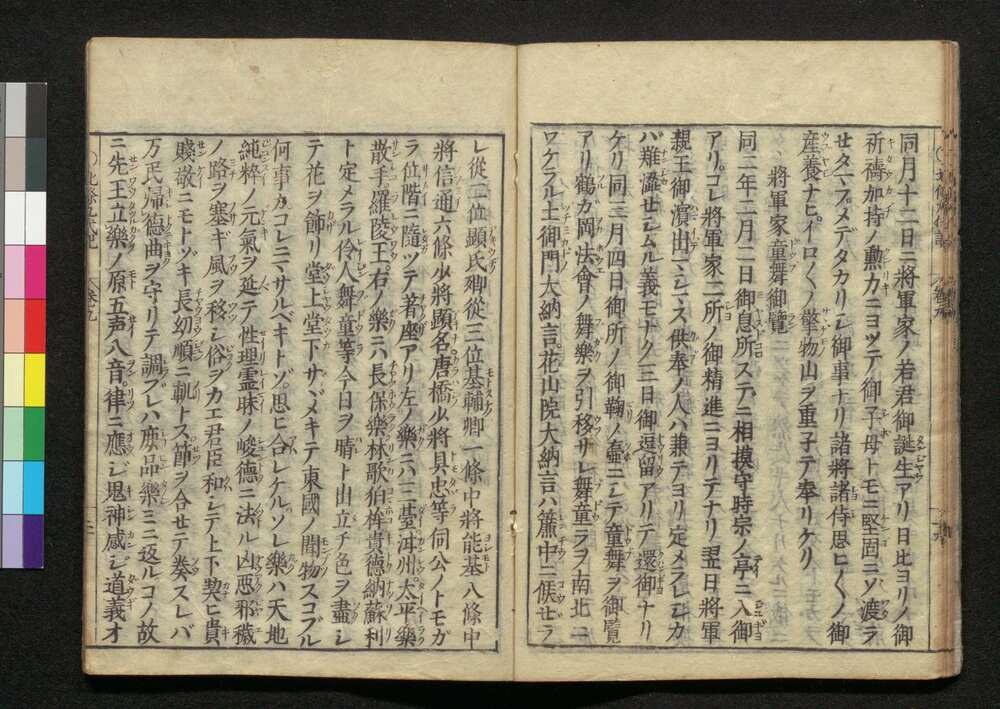 同月十二日ニ將軍家ノ若君御誕生アリ日比ヨリノ御
祈禱加持ノ勲力ニヨツテ御子母トモニ堅固ニゾ渡ラ
せタマフメデタカリシ御事ナリ諸將諸侍思ヒ〱ノ御
産養ナヒイロ〱ノ擎物山ヲ重子テ奉リケリ
將軍家童舞御覽
同二年二月二日御息所ステニ相摸守時宗ノ亭ニ入御
アリコレ將軍家二所ノ御精進ニヨリテナリ翌日將軍
親王御濵出ニシモス供奉ノ人々兼テヨリ定メラレシカ
バ難澁せシムル義モナク三日御逗留アリテ還御ナリ
ケリ同三月四日御所ノ御鞠ノ壷ニシテ童舞ヲ御覽
アリ鶴カ岡法會ノ舞樂ヲ引移サレ舞童ラヲ南北ニ
ワケラル土御門大納言花山院大納言ハ簾中ニ候せラ
レ從二位顕氏卿從三位基輔卿一條中將能基八條中
將信通六條少將顕名唐橋少將具忠等伺公ノトモガ
ラ位階ニ隨ツテ著座アリ左ノ樂ニハ三臺洱州太平樂
散手羅陵王右ノ樂ニハ長保樂林歌狛桙貴德納蘇利
ト定メラル伶人舞童等今日ヲ晴ト出立チ色ヲ盡シ
テ花ヲ飾リ堂上堂下サヾメキテ東國ノ聞物スコブル
何事カコレニマサルベキトゾ思ヒ合レケルソレ樂ハ天地
純粹ノ元氣ヲ延テ性理霊昧ノ峻德ニ法ル凶惡邪穢
ノ路ヲ塞ギ風ヲ移シ俗ヲカエ君臣和シテ上下契ヒ貴
賤敬ニモトヅキ長幼順ニ軏トス節ヲ合せテ奏スレバ
万民帰德曲ヲ守リテ調ブレハ庶品樂ミニ返ルコノ故
ニ先王立樂ノ原五声八音律ニ應ジ鬼神感シ道義オ